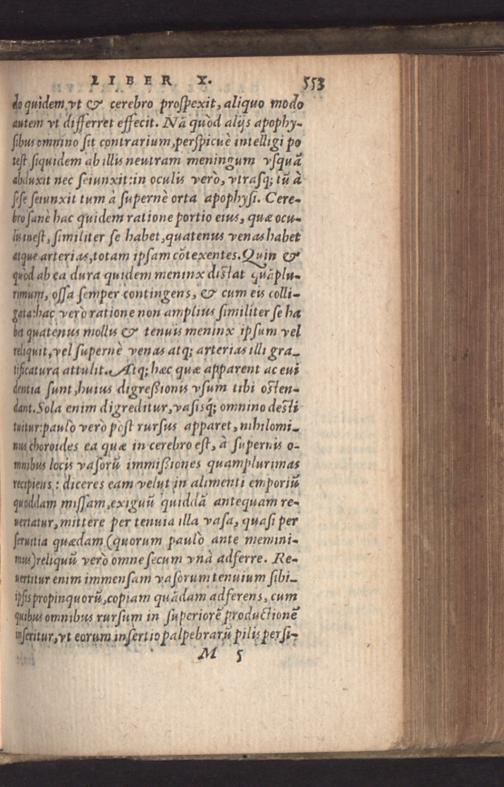 LIBER X. 553
do quidem, vt & cerebro prospexit, aliquo modo
autem vt differret effecit. Nã quòd alijs apophy-
sibus omnino sit contrarium, perspicuè intelligi po
test siquidem ab illis neutram meningum vsquã
abduxit nec seiunxit: in oculis verò, vtrasq; tũ à
sese seiunxit tum à supernè orta apophysi. Cere-
bro sanè hac quidem ratione portio eius, quæ ocu-
lis inest, similiter se habet, quatenus venas habet
atque arterias, totam ipsam cõtexentes. Quin &
quòd ab ea dura quidem meninx distat quàplu-
rimum, ossa semper contingens, & cum eis colli-
gata: hac verò ratione non amplius similiter se ha
bet quatenus mollis & tenuis meninx ipsum vel
reliquit, vel supernè venas atq; arterias illi gra-
tificatura attulit. Atq; hæc quæ apparent ac eui
dentia sunt, huius digreßionis vsum tibi osten-
dant. Sola enim digreditur, vasisq́; omnino desti
tuitur: paulò verò pòst rursus apparet, nihilomi-
nus choroides ea quæ in cerebro est, à supernis o-
mnibus locis vasorũ immißiones quamplurimas
recipiens: diceres eam velut in alimenti emporiũ
quoddam missam, exiguũ quiddã antequam re-
uertatur, mittere per tenuia illa vasa, quasi per
seruitia quædam (quorum paulò ante memini-
mus) reliquũ verò omne secum vnà adferre. Re-
uertitur enim immensam vasorum tenuium sibi-
ipsis propinquorũ, copiam quãdam adferens, cum
quibus omnibus rursum in superiorẽ productionẽ
inseritur, vt eorum insertio palpebrarũ pilis persi-
M 5